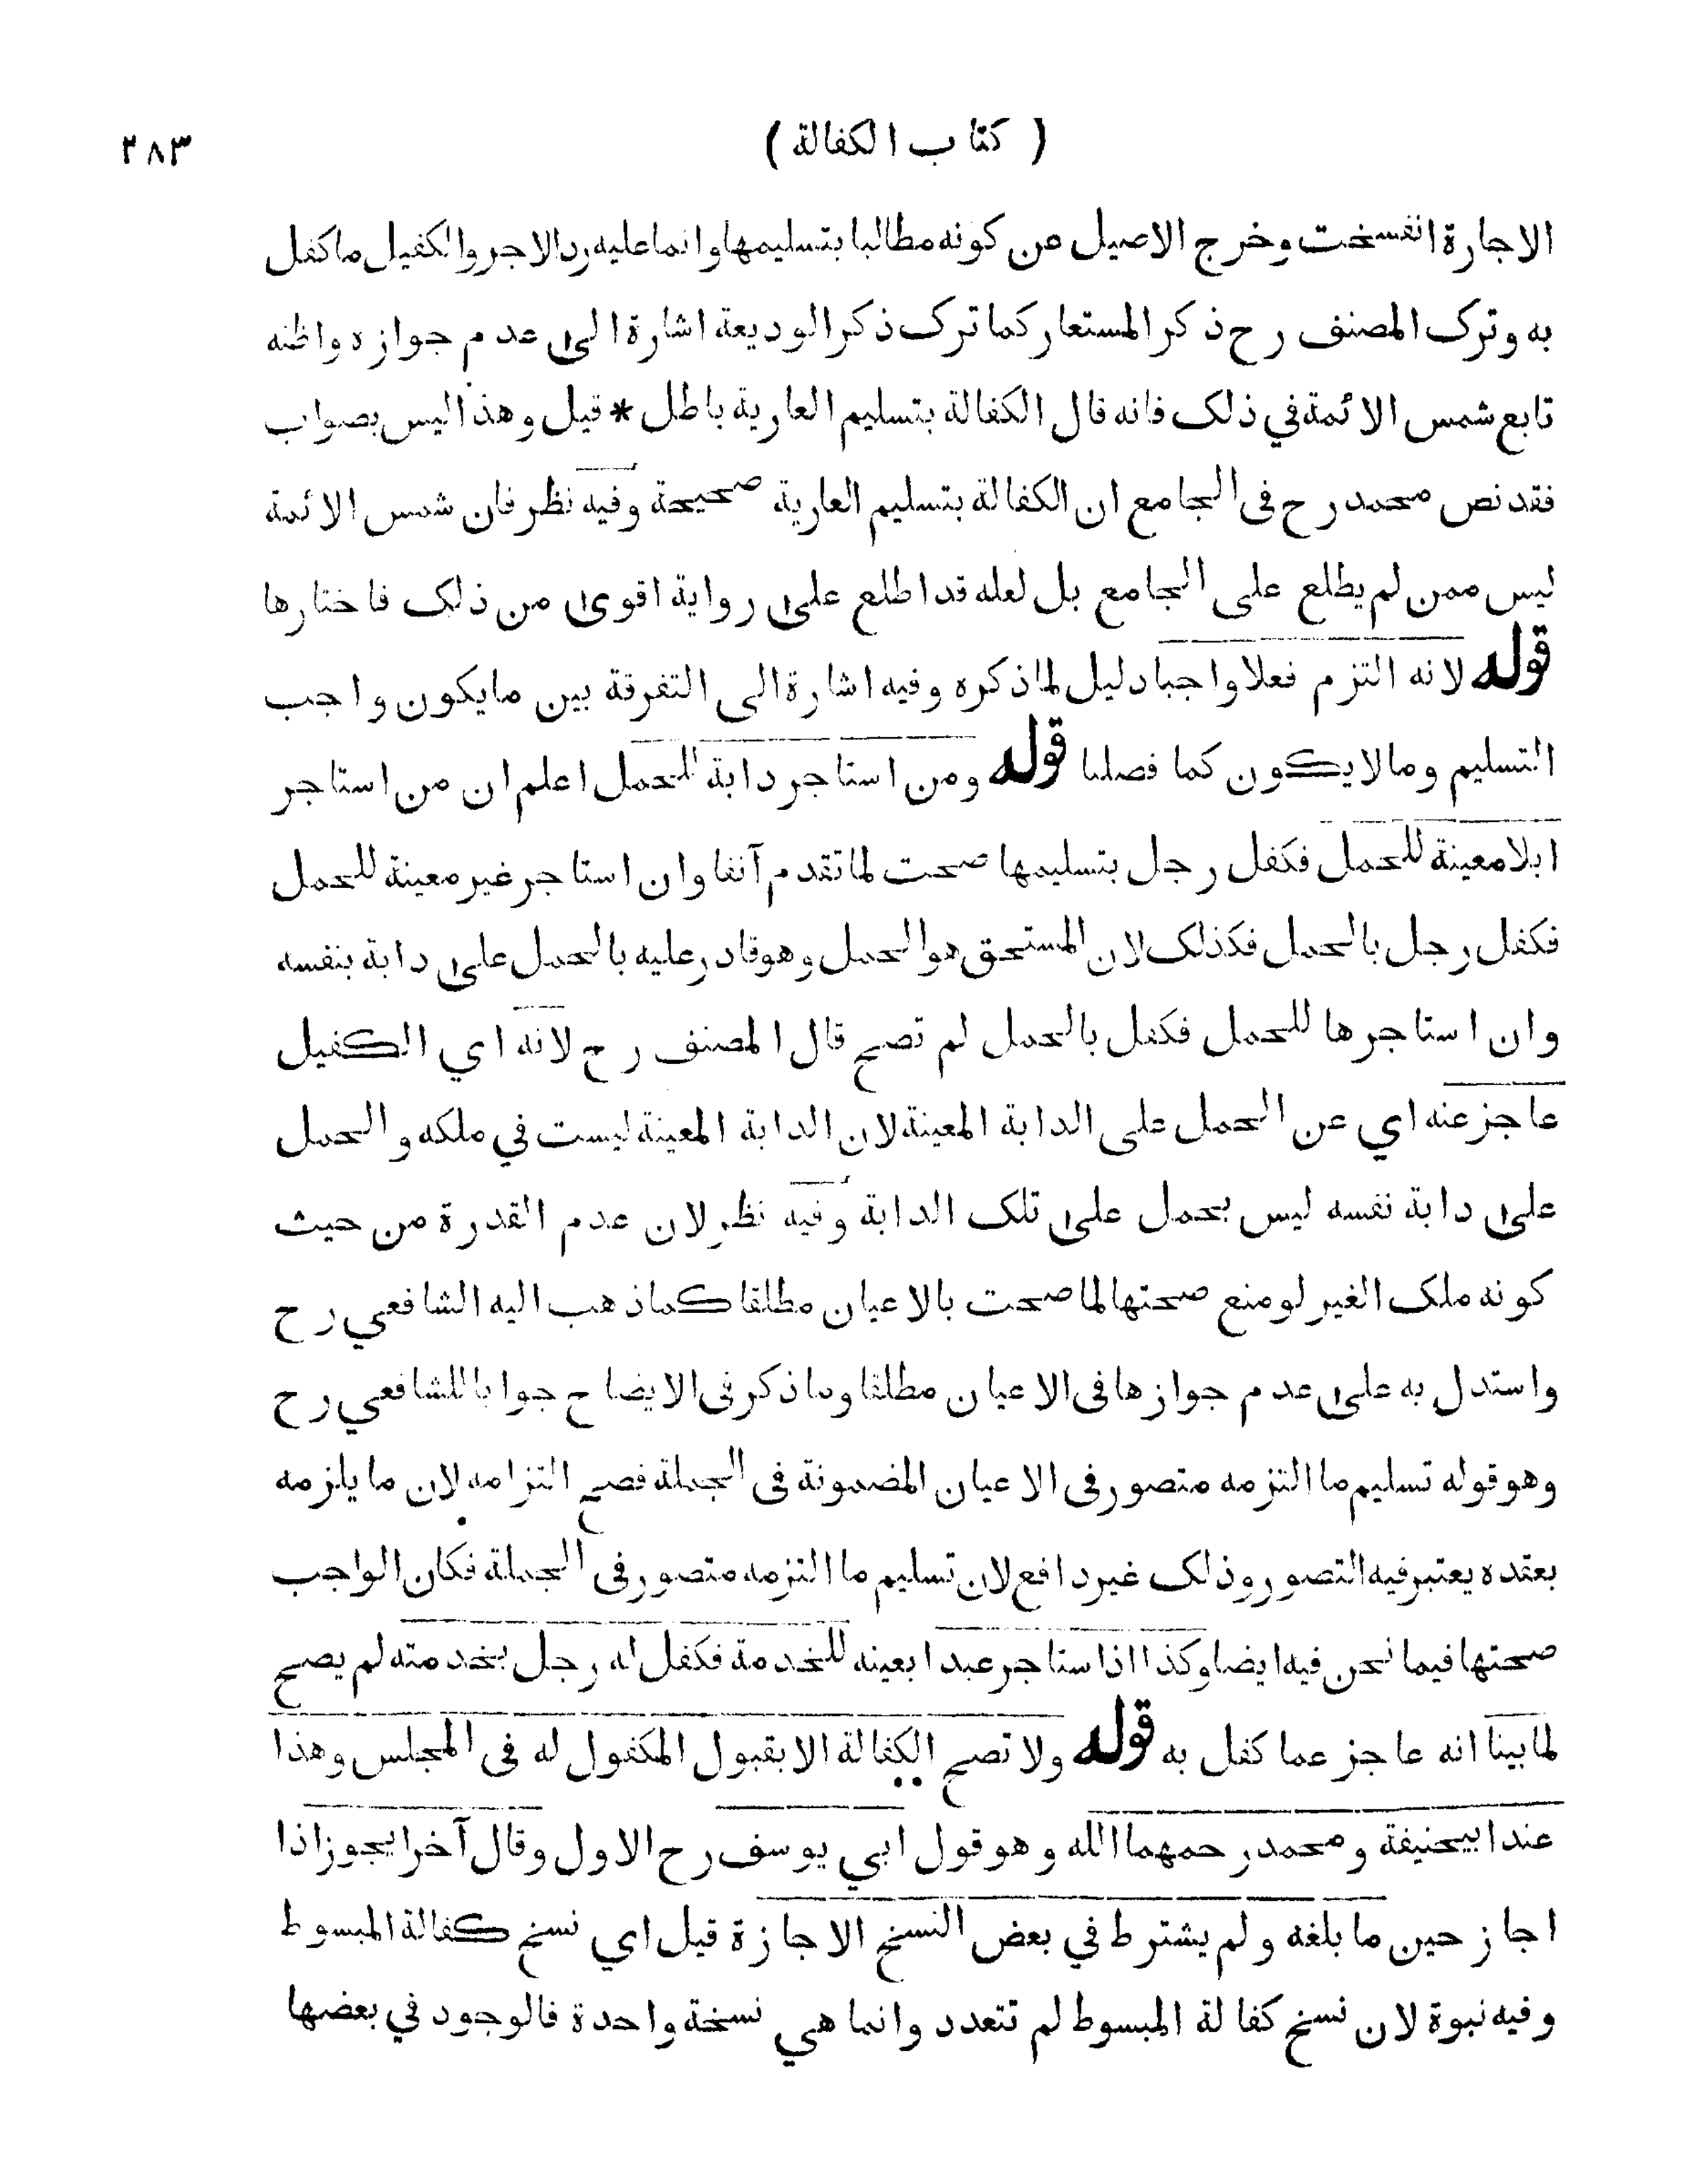 ( كتاب الكفالة ) ٢٨٣
الاجارة انفسخت وخرج الاصيل من كونه مطالبا بتسليمها وانما عليه رد الاجر والكفيل ما كفل
به وترك المصنف رح ذكر المستعار كما ترك ذكر الوديعة اشارة الى عدم جوازه واظنه
تابع شمس الائمة في ذلك فانه قال الكفالة بتسليم العارية باطل * قيل وهذا ليس بصواب
فقد نص محمد رح في الجامع ان الكفالة بتسليم العارية صحيحة وفيه نظر فان شمس الائمة
ليس ممن لم يطلع على الجامع بل لعله قد اطلع على رواية اقوى من ذلك فاختارها
قوله لانه التزم فعلا واجبا دليل لما ذكره وفيه اشارة الى التفرقة بين ما يكون واجب
التسليم وما لا يكون كما فصلنا قوله ومن استاجر دابة للحمل اعلم ان من استاجر
ابلا معينة للحمل فكفل رجل بتسليمها صحت لما تقدم آنفا وان استاجر غير معينة للحمل
فكفل رجل بالحمل فكذلك لان المستحق هو الحمل وهو قادر عليه بالحمل على دابة بنفسه
وان استاجرها للحمل فكفل بالحمل لم تصح قال المصنف رح لانه اي الكفيل
عاجز عنه اي عن الحمل على الدابة المعينة لان الدابة المعينة ليست في ملكه والحمل
على دابة نفسه ليس بحمل على تلك الدابة وفيه نظر لان عدم القدرة من حيث
كونه ملك الغير لو منع صحتها لما صحت بالاعيان مطلقا كما ذهب اليه الشافعي رح
واستدل به على عدم جوازها في الاعيان مطلقا وما ذكر في الايضاح جوابا للشافعي رح
وهو قوله تسليم ما التزمه متصور في الاعيان المضمونة في الجملة فصح التزامه لان ما يلزمه
بعقده يعتبر فيه التصور وذلك غير دافع لان تسليم ما التزمه متصور في الجملة فكان الواجب
صحتها فيما نحن فيه ايضا وكذا اذا ستاجر عبدا بعينه للخدمة فكفل له رجل بخدمته لم يصح
لما بينا انه عاجز عما كفل به قوله ولا تصح الكفالة الا بقبول المكفول له في المجلس وهذا
عند ابيحنيفة ومحمد رحمهما الله وهو قول ابي يوسف رح الاول وقال آخرا يجوز اذا
اجاز حين ما بلغه ولم يشترط في بعض النسخ الاجازة قيل اي نسخ كفالة المبسوط
وفيه نبوة لان نسخ كفالة المبسوط لم تتعدد وانما هي نسخة واحدة فالوجود في بعضها